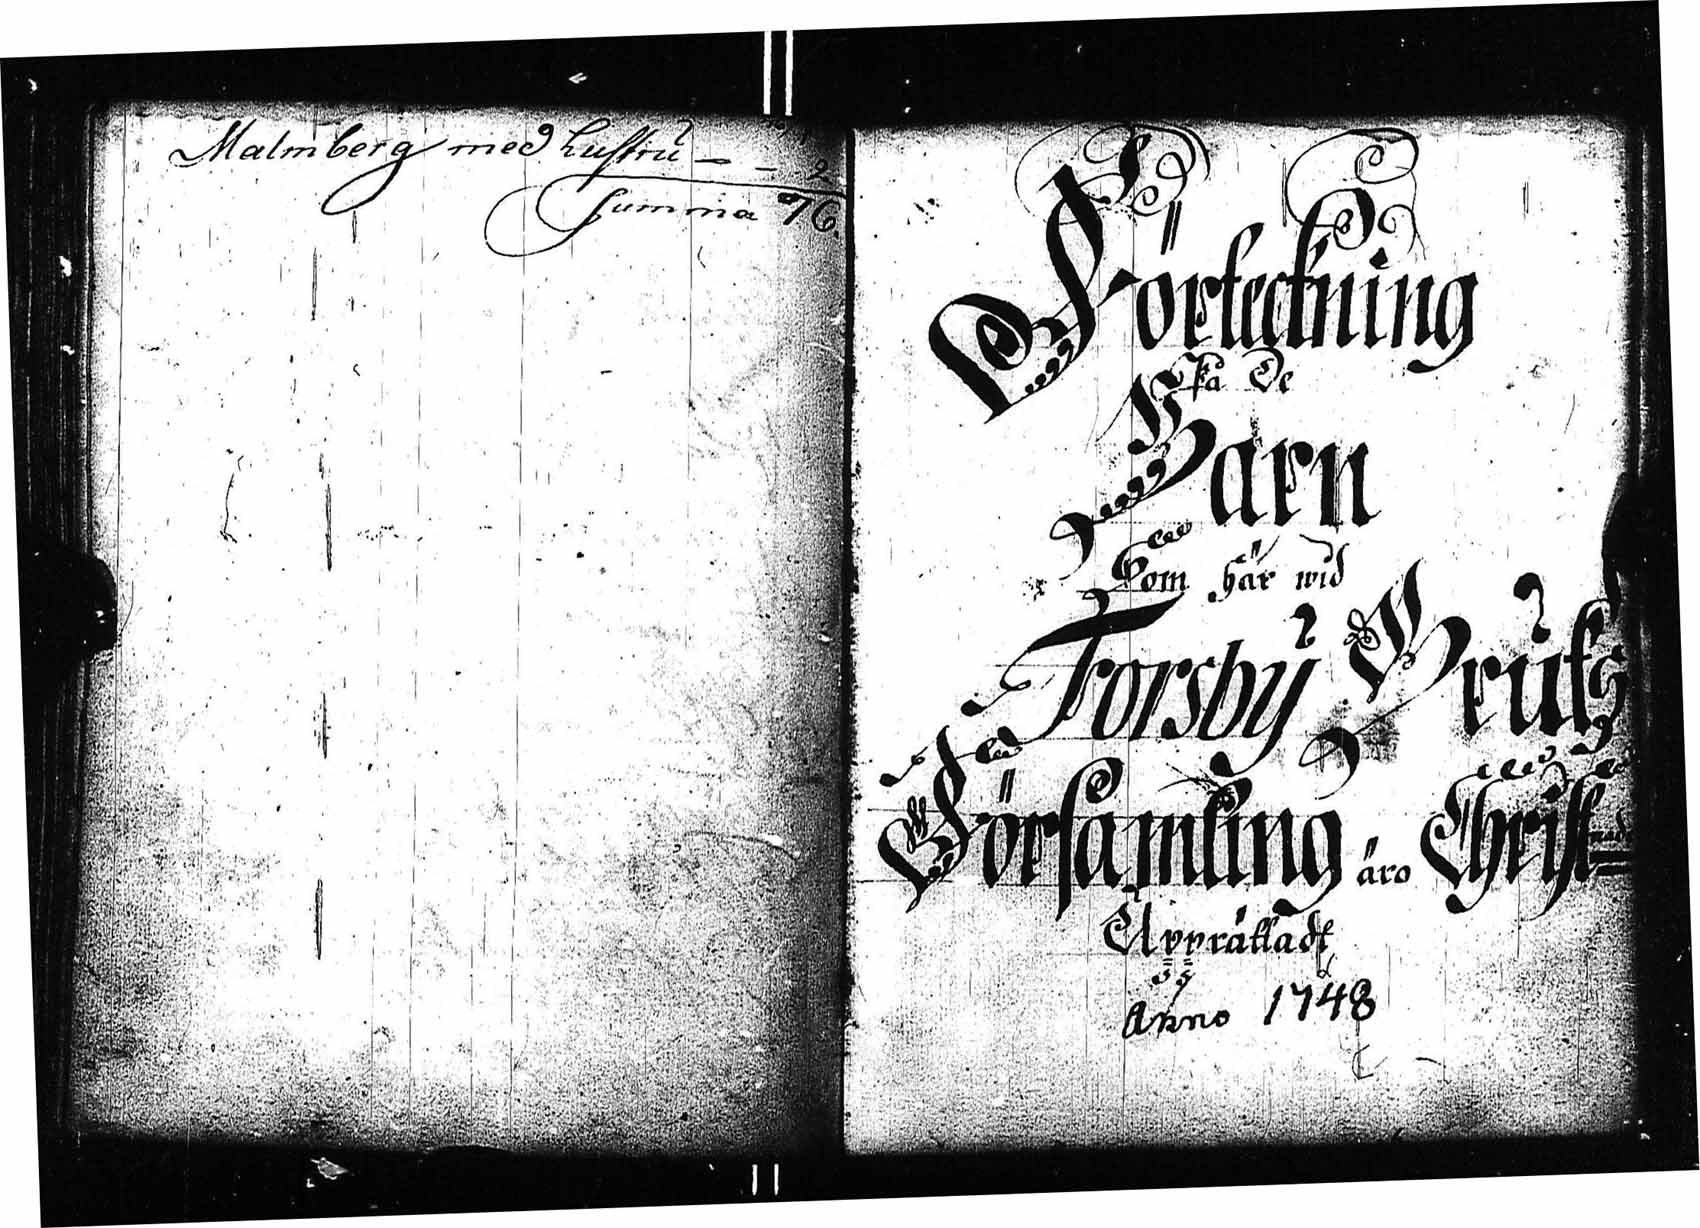 Malmberg med hustru — — 2
Summa 76.
Förteckning
På De
Barn
Som här wid
Forsby Bruks
Församling äro Christ-
Upprättadt
Anno 1748